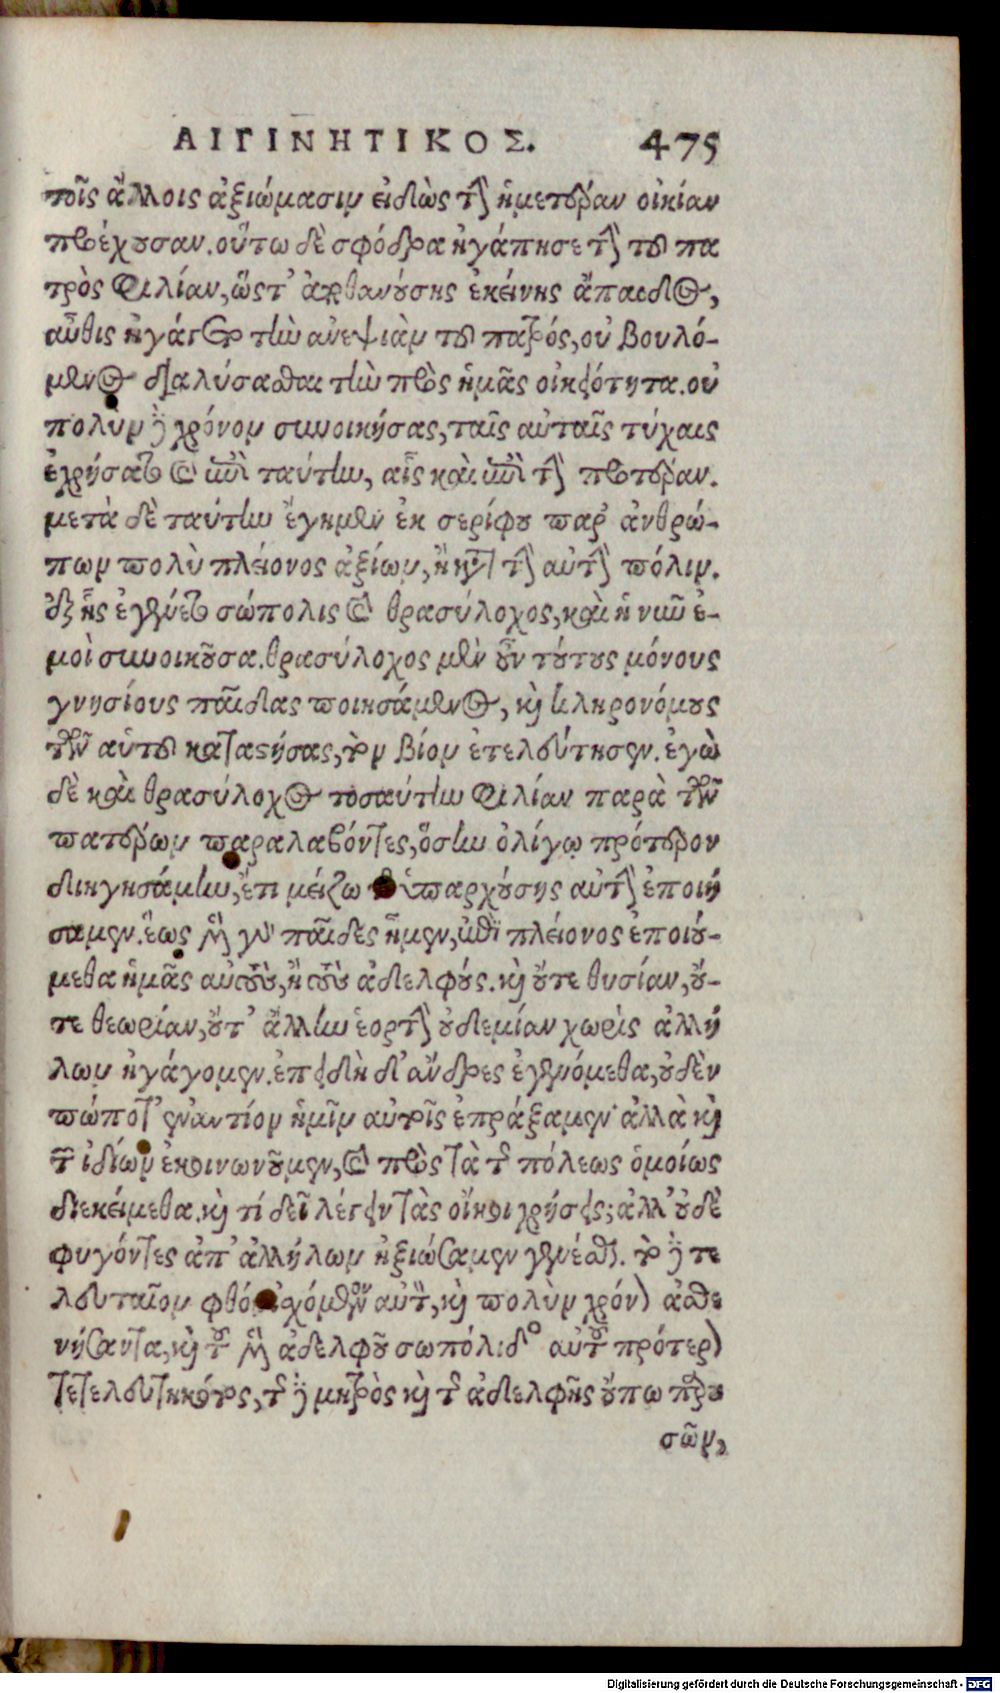 ΑΙΓΙΝΗΤΙΚΟΣ. 475
τοῖς ἄλλοις ἀξιώμασιν εἰδὼς τὴν ἡμετέραν οἰκίαν
προέχουσαν. οὕτω δὲ σφόδρα ἠγάπησε τὴν τοῦ πα
τρὸς φιλίαν, ὥστ᾽ ἀποθανούσης ἐκείνης ἄπαιδος,
αὖθις ἠγάγετο τὴν ἀνεψιὰν τοῦ πατρός, οὐ βουλό-
μενος διαλύσασθαι τὴν πρὸς ἡμᾶς οἰκειότητα. οὐ
πολὺν δὲ χρόνον συνοικήσας, ταῖς αὐταῖς τύχαις
ἐχρήσατο καὶ περὶ ταύτην, αἷς καὶ περὶ τὴν προτέραν.
μετὰ δὲ ταύτην ἔγημεν ἐκ σερίφου παρ᾽ ἀνθρώ-
πων πολὺ πλείονος ἀξίων, ἢ κατὰ τὴν αὐτὴν πόλιν.
ἐξ ἧς ἐγένετο σώπολις καὶ θρασύλοχος, καὶ ἡ νῦν ἐ-
μοὶ συνοικοῦσα. θρασύλοχος μὲν οὖν τούτους μόνους
γνησίους παῖδας ποιησάμενος, καὶ κληρονόμους
τῶν αὑτοῦ καταστήσας, τὸν βίον ἐτελεύτησεν. ἐγὼ
δὲ καὶ θρασύλοχος τοσαύτην φιλίαν παρὰ τῶν
πατέρων παραλαβόντες, ὅσην ὀλίγῳ πρότερον
διηγησάμην, ἔτι μείζω τῆς ὑπαρχούσης αὐτὴν ἐποιή
σαμεν. ἕως μὲν γὰρ παῖδες ἦμεν, περὶ πλείονος ἐποιού-
μεθα ἡμᾶς αὐτούς, ἢ τοὺς ἀδελφούς. καὶ οὔτε θυσίαν, οὔ-
τε θεωρίαν, οὔτ᾽ ἄλλην ἑορτὴν οὐδεμίαν χωρὶς ἀλλή
λων ἠγάγομεν. ἐπειδὴ δ᾽ ἄνδρες ἐγενόμεθα, οὐδὲν
πώποτ᾽ ἐναντίον ἡμῖν αὐτοῖς ἐπράξαμεν· ἀλλὰ καὶ
τῶν ἰδίων ἐκοινωνοῦμεν, καὶ πρὸς τὰ τῆς πόλεως ὁμοίως
διεκείμεθα. καὶ τί δεῖ λέγειν τὰς οἴκοι χρήσεις; ἀλλ᾽ οὐδὲ
φυγόντες ἀπ᾽ ἀλλήλων ἠξιώσαμεν γενέσθαι. τὸ δὲ τε
λευταῖον αὐτόν, καὶ πολὺν χρόνον ἀσθε
νήσαντα, καὶ τοῦ μὲν ἀδελφοῦ σωπόλιδος αὐτοῦ πρότερον
τετελευτηκότος, τῆς δὲ μητρὸς καὶ τῆς ἀδελφῆς οὔπω παρου
σῶν,
Digitalisierung gefördert durch die Deutsche Forschungsgemeinschaft - DFG